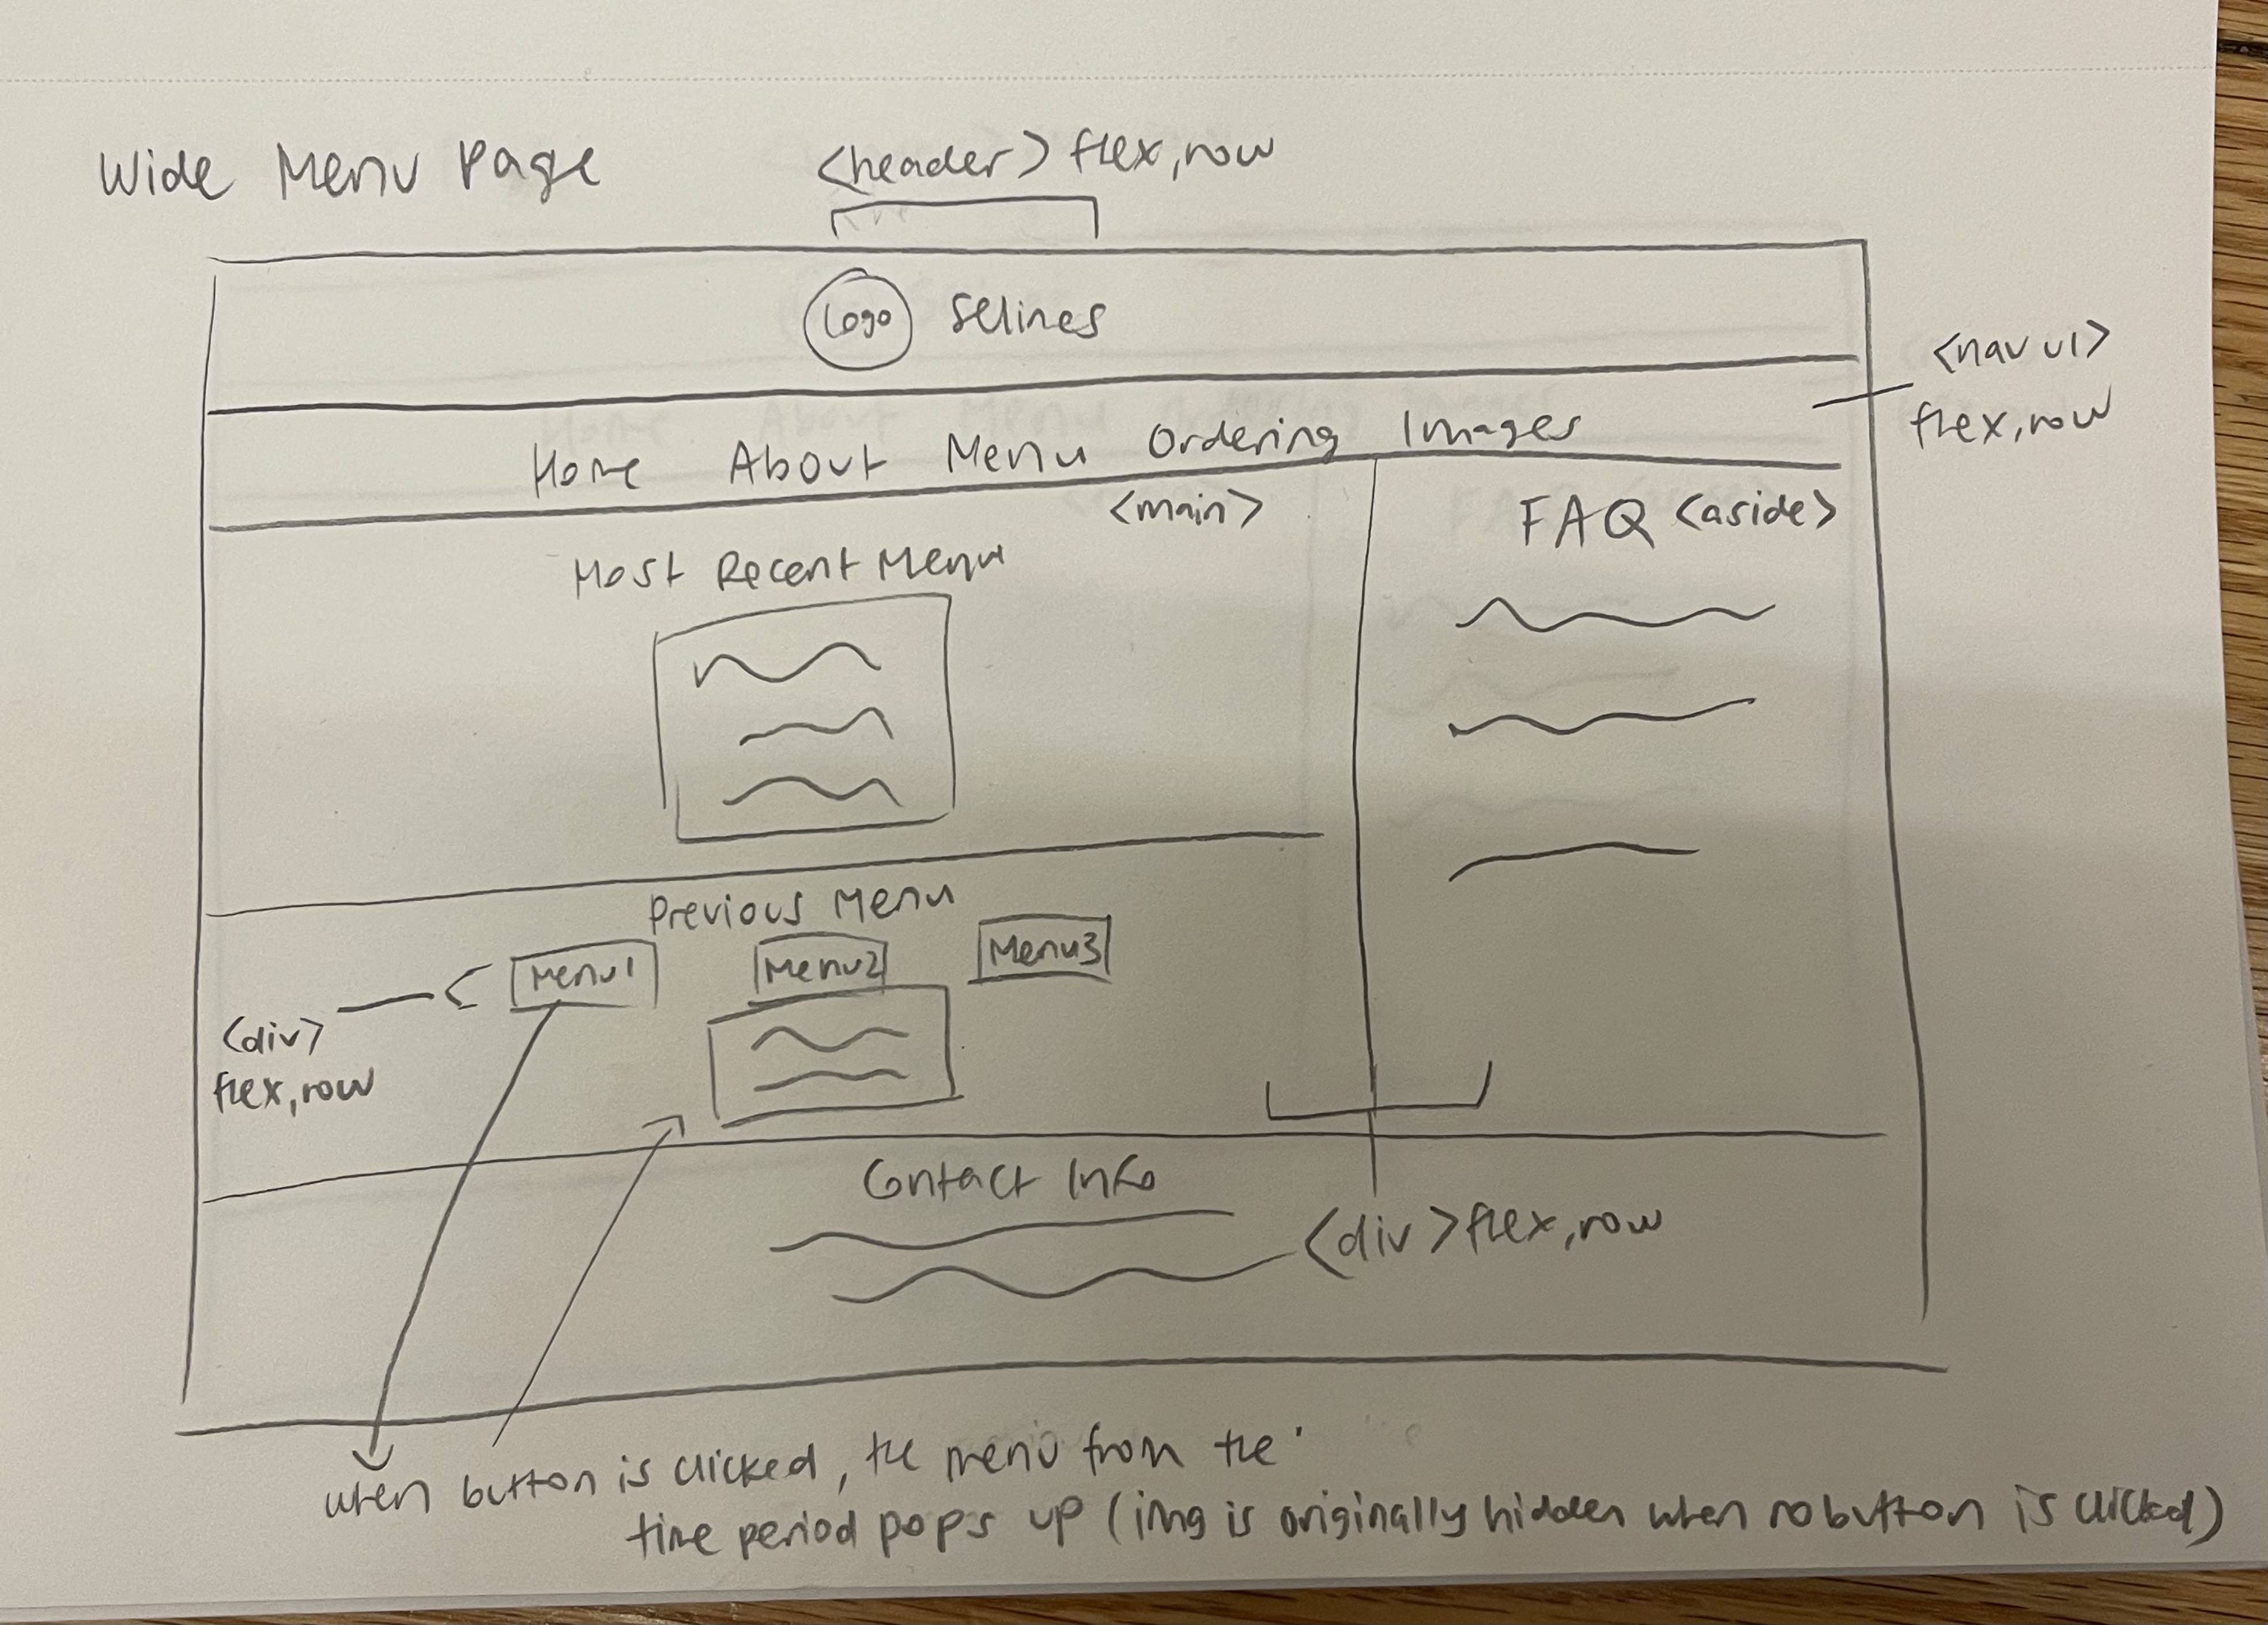 Wide Menu Page
<header> flex, row
Logo Selines
<nav ul>
flex, row
Home About Menu Ordering Images
<main>
FAQ <aside>
Most Recent Menu
Previous Menu
Menu1 Menu2 Menu3
<div>
flex, row
Contact Info
<div> flex, row
when button is clicked, the menu from the
time period pops up (img is originally hidden when no button is clicked)